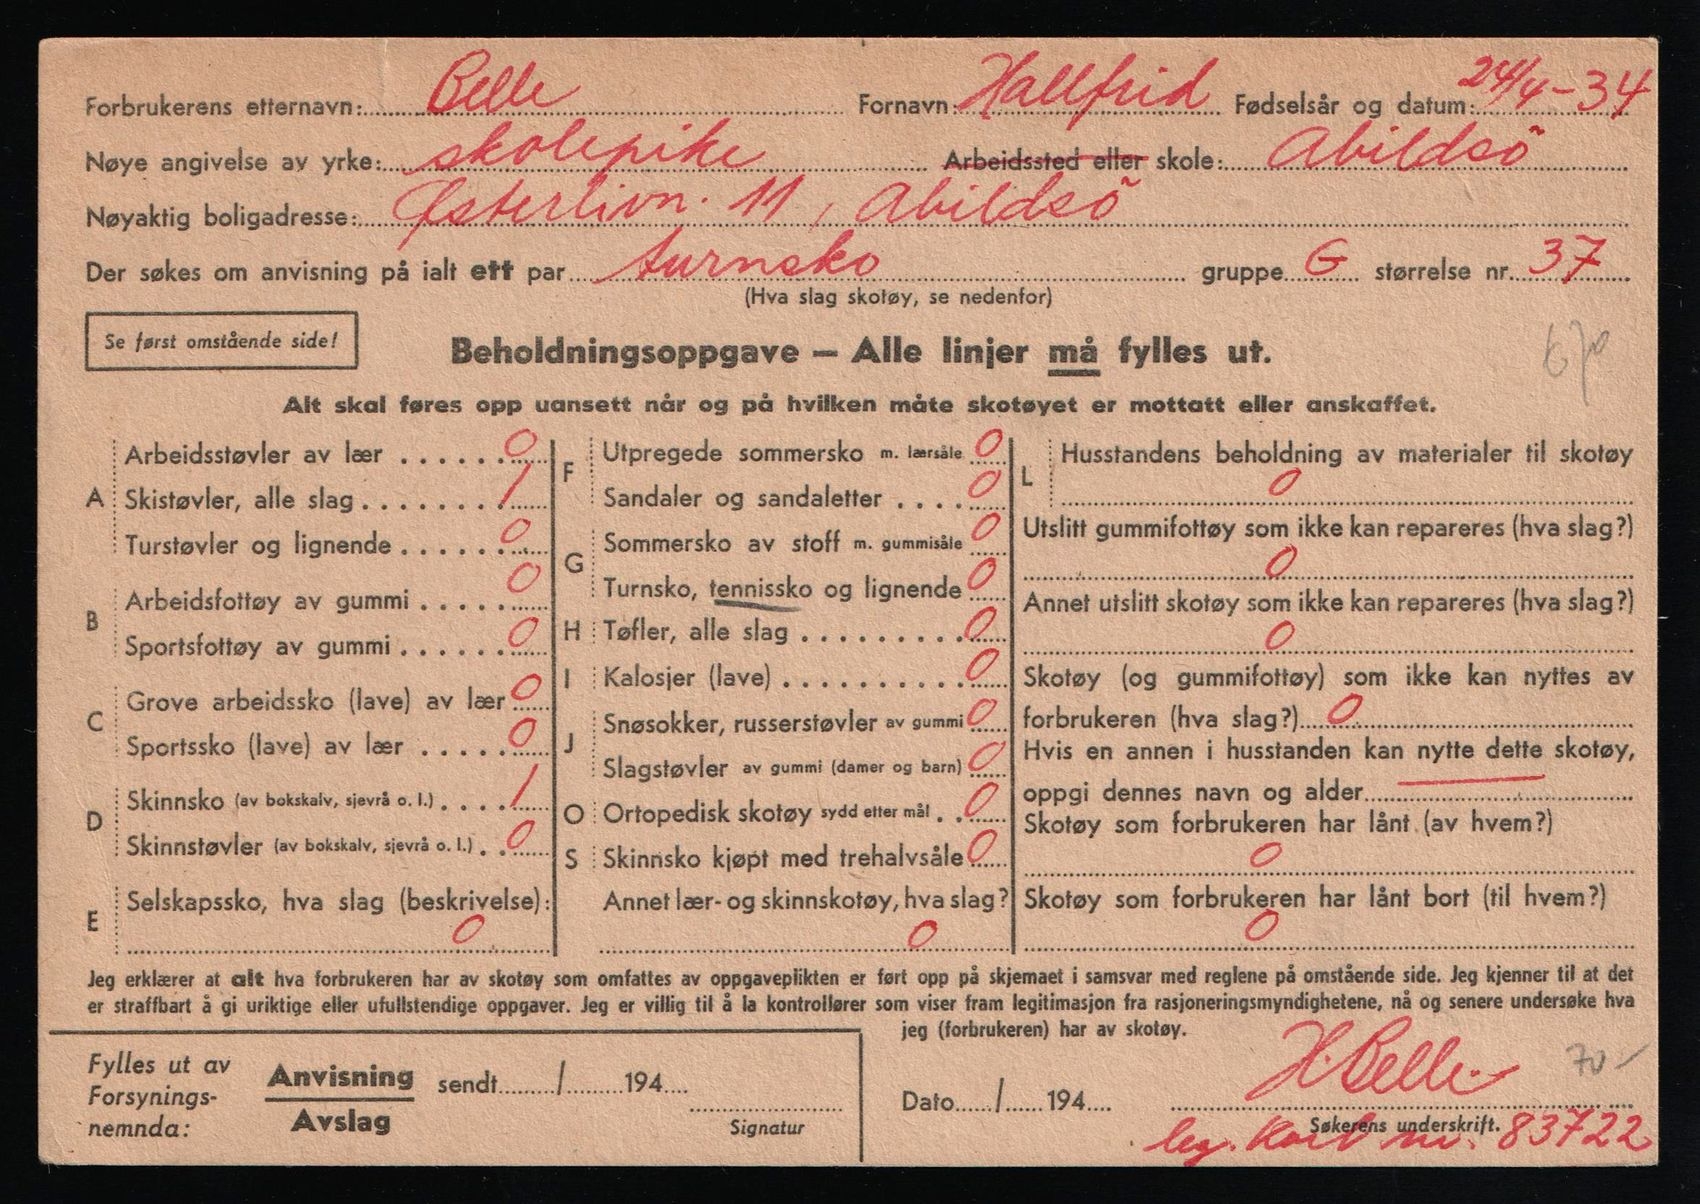 Forbrukerens etternavn: Belle Fornavn: Hallfrid Fødselsår og datum: 24/4-34
Nøye angivelse av yrke: skolepike Arbeidssted eller skole: Abildsö
Nøyaktig boligadresse: Østerlivn. 11, Abildsö
Der søkes om anvisning på ialt ett par turnsko gruppe G størrelse nr. 37
(Hva slag skotøy, se nedenfor)
Se først omstående side!
Beholdningsoppgave – Alle linjer må fylles ut.
Alt skal føres opp uansett når og på hvilken måte skotøyet er mottatt eller anskaffet.
A
Arbeidsstøvler av lær 0
Skistøvler, alle slag 1
Turstøvler og lignende 0
B
Arbeidsfottøy av gummi 0
Sportsfottøy av gummi 0
C
Grove arbeidssko (lave) av lær 0
Sportssko (lave) av lær 0
D
Skinnsko (av bokskalv, sjevrå o. l.) 1
Skinnstøvler (av bokskalv, sjevrå o. l.) 0
E
Selskapssko, hva slag (beskrivelse):
0
F
Utpregede sommersko m. lærsåle 0
Sandaler og sandaletter 0
G
Sommersko av stoff m. gummisåle 0
Turnsko, tennissko og lignende 0
H Tøfler, alle slag 0
I Kalosjer (lave) 0
J
Snøsokker, russerstøvler av gummi 0
Slagstøvler av gummi (damer og barn) 0
O Ortopedisk skotøy sydd etter mål 0
S Skinnsko kjøpt med trehalvsåle 0
Annet lær- og skinnskotøy, hva slag?
0
L Husstandens beholdning av materialer til skotøy
0
Utslitt gummifottøy som ikke kan repareres (hva slag?)
0
Annet utslitt skotøy som ikke kan repareres (hva slag?)
0
Skotøy (og gummifottøy) som ikke kan nyttes av
forbrukeren (hva slag?) 0
Hvis en annen i husstanden kan nytte dette skotøy,
oppgi dennes navn og alder
Skotøy som forbrukeren har lånt (av hvem?)
0
Skotøy som forbrukeren har lånt bort (til hvem?)
0
Jeg erklærer at alt hva forbrukeren har av skotøy som omfattes av oppgaveplikten er ført opp på skjemaet i samsvar med reglene på omstående side. Jeg kjenner til at det
er straffbart å gi uriktige eller ufullstendige oppgaver. Jeg er villig til å la kontrollører som viser fram legitimasjon fra rasjoneringsmyndighetene, nå og senere undersøke hva
jeg (forbrukeren) har av skotøy.
Fylles ut av
Forsynings-
nemnda:
Anvisning
Avslag
sendt / 194
Signatur
Dato / 194
H. Belle.
70-
Søkerens underskrift.
leg. kort nr. 83722